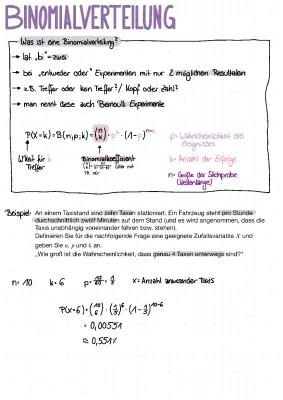 BINOMIALVERTEILUNG
Was ist eine Binomialverteilung?
→ lat. „bi“ = zwei
→ bei „entweder oder“ Experimenten mit nur 2 möglichen Resultaten
→ z.B. Treffer oder kein Treffer? / Kopf oder Zahl?
→ man nennt diese auch Bernoulli Experimente
P(X=k) = B(n;p;k) = (n k) · p^k · (1-p)^n-k
p = Wahrscheinlichkeit des Ereignisses
k = Anzahl der Erfolge
n = Größe der Stichprobe
für k Treffer
Binomialkoeffizient
Beispiel: An einem Taxistand sind zehn Taxen stationiert. Ein Fahrzeug steht pro Stunde
durchschnittlich zwölf Minuten auf dem Stand (und es wird angenommen, dass die
Taxis unabhängig voneinander fahren bzw. stehen).
Definieren Sie für die nachfolgende Frage eine geeignete Zufallsvariable X und
geben Sie n, p und k an.
„Wie groß ist die Wahrscheinlichkeit, dass genau 4 Taxen unterwegs sind?“
n = 10 k = 6 p = 12/60 = 1/5 X = Anzahl anwesender Taxis
P(X=6) = (10 6) · (1/5)^6 · (1 - 1/5)^10-6
= 0,00551
≙ 0,551%